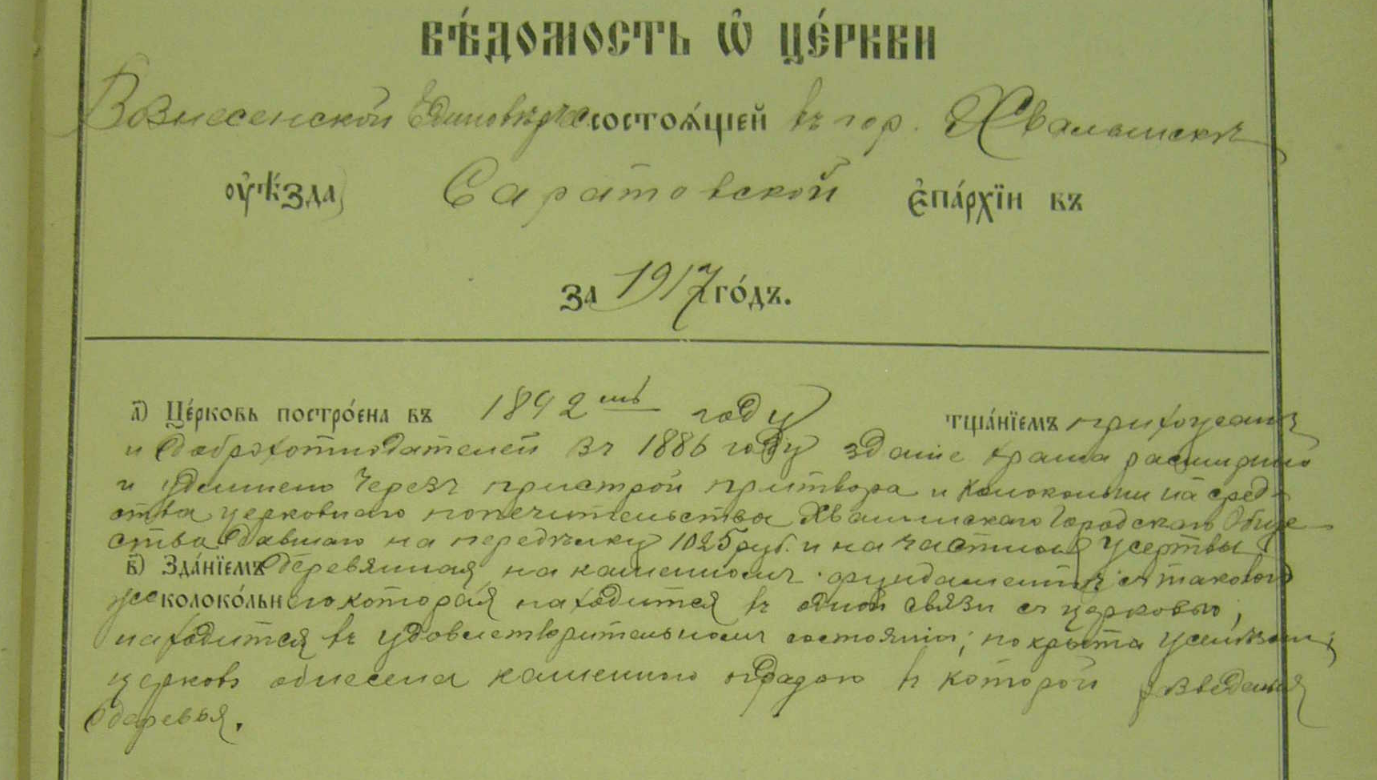 ВѢ́ДОМОСТЬ Ѡ҆ ЦЕ́РКВИ
Вознесенской Единовѣрч состоѧ́щей въ гор. Хвалынскѣ
ᲂу҆ѣ́зда Саратовской є҆па́рхїи въ
за 1917 го́дъ.
а҃) Це́рковь постро́ена въ 1892 мъ году тща́нїемъ прихожанъ
и доброхотнодателей въ 1886 году зданіе храма расширено
и удлинено черезъ пристрой притвора и колокольни на сред
ства церковнаго попечительства Хвалынскаго Городскаго Обще
ства давшаго на передѣлку 1025 руб. и на частныя жертвы
в҃) Зда́нїемъ деревянная на каменномъ фундаментѣ съ таковою
же колоко́льн ею которая находится въ одной связи съ церковью,
находится въ удовлетворительномъ состояніи; покрыта желѣзомъ;
церковь обнесена каменною оградою въ которой разведены
деревья.